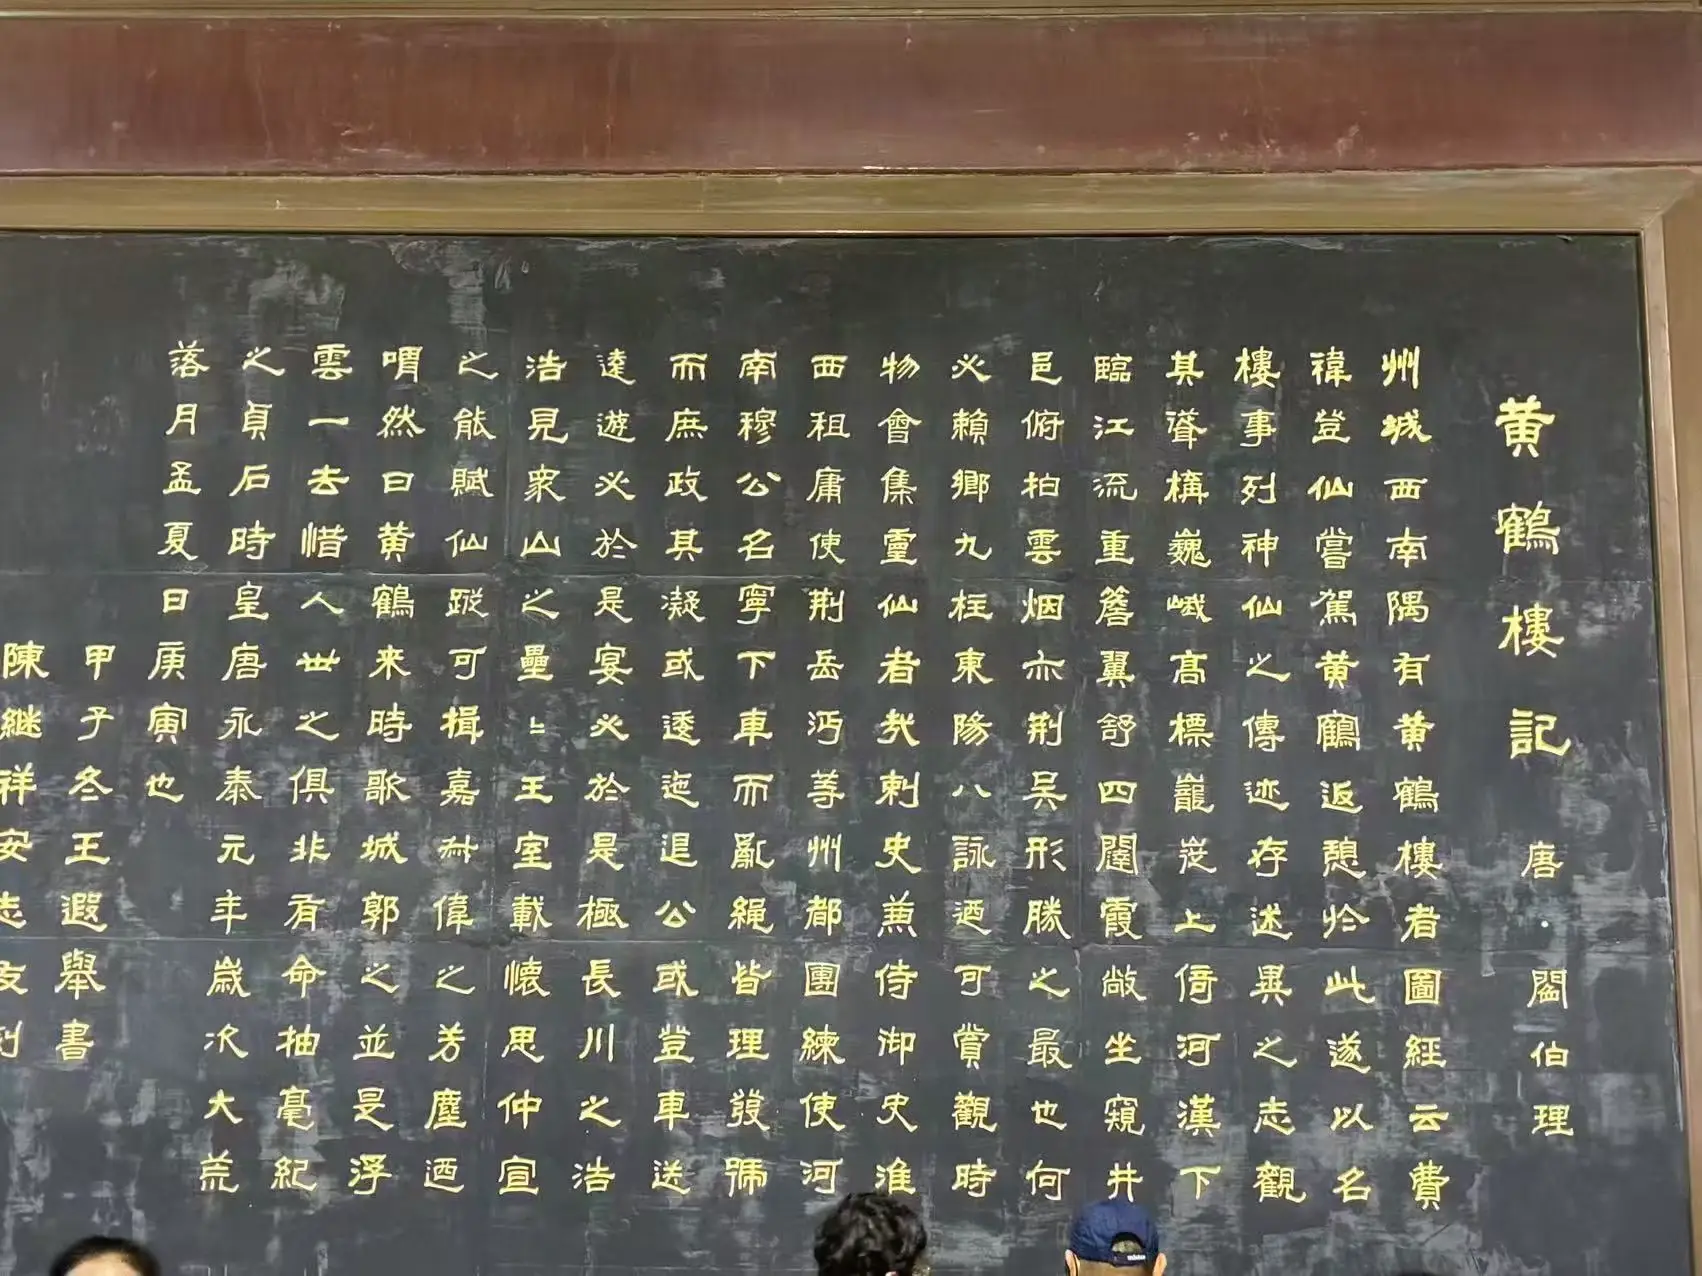 黄鶴樓記 唐 閻伯理
州城西南隅有黄鶴樓者圖經云費
禕登仙嘗駕黄鶴返憩於此遂以名
樓事列神仙之傳迹存述異之志觀
其聳構巍峨高標巃嵸上倚河漢下
臨江流重簷翼舒四闥霞敞坐窺井
邑俯拍雲烟亦荆吴形勝之最也何
必賴鄉九柱東陽八詠迺可賞觀時
物會集靈仙者哉刺史兼侍御史淮
西租庸使荆岳沔等州都團練使河
南穆公名寧下車而亂繩皆理發號
而庶政其凝或逶迤退公或登車送
遠遊必於是宴必於是極長川之浩
浩見衆山之壘〻王室載懷思仲宣
之能賦仙蹤可揖嘉叔偉之芳塵迺
喟然曰黄鶴來時歌城郭之並是浮
雲一去惜人世之俱非有命抽毫紀
之貞石時皇唐永泰元年歲次大荒
落月孟夏日庚寅也
甲子冬王遐舉書
陳継祥安志友刻